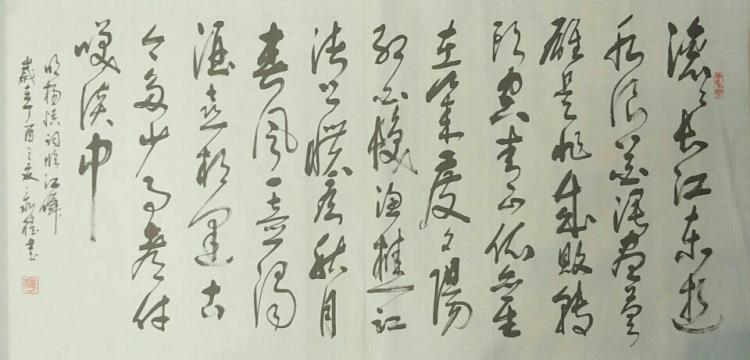 滚々长江东逝
水浪花淘尽英
雄是非成敗转
头空青山依旧
在几度夕陽
红白发渔樵江
渚上惯看秋月
春風一壶浊
酒喜相逢古
今多少事都付
笑谈中
明杨慎词临江仙
岁在丁酉之夏永
书